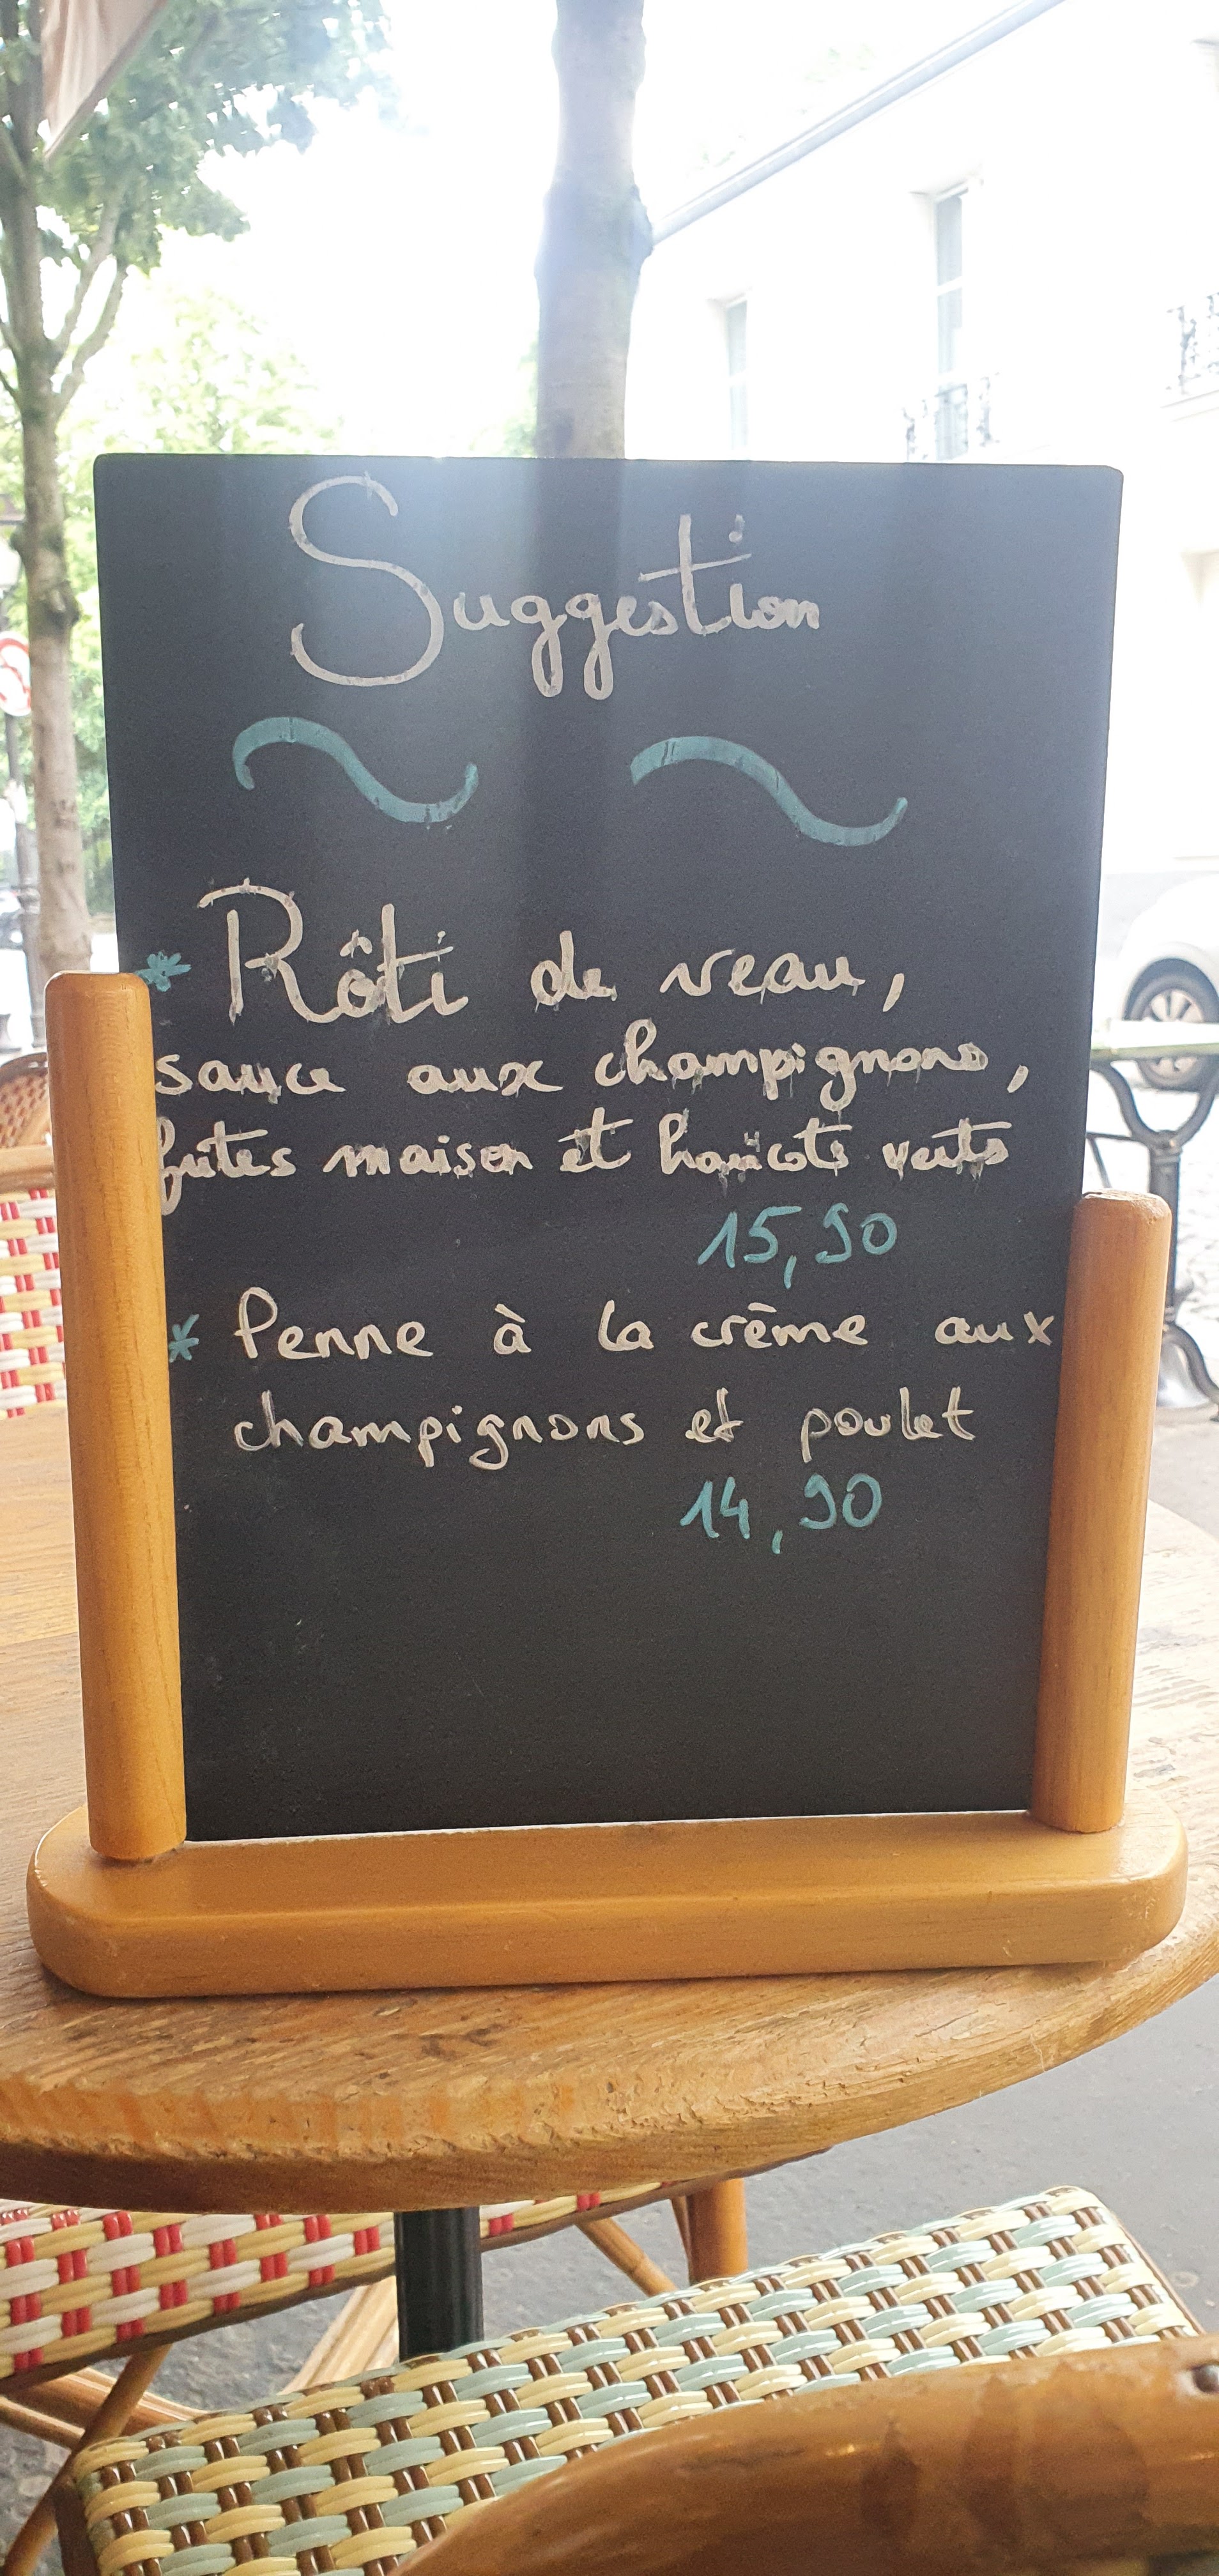 Suggestion
* Rôti de veau,
sauce aux champignons,
frites maison et haricots verts
15,90
* Penne à la crème aux
champignons et poulet
14,90